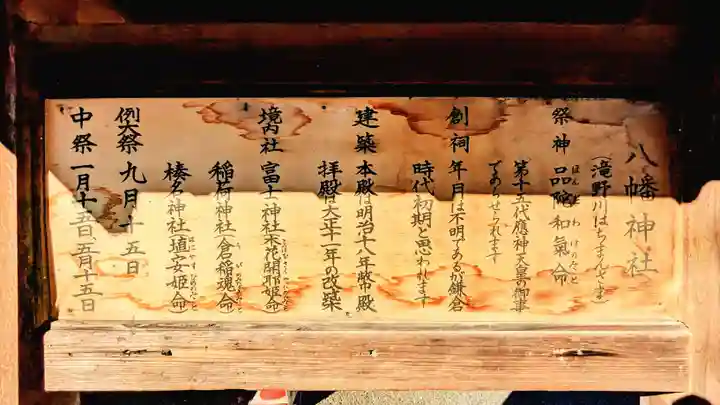 八幡神社
(滝野川はちまんさま)
祭神 品陀和氣命
第十五代應神天皇の御事
であらせられます
創祠 年月は不明であるが鎌倉
時代初期と思われます
建築 本殿は明治十七年幣殿
拝殿は大正十一年の改築
境内社 富士神社(木花開耶姫命)
稲荷神社(倉稲魂命)
榛名神社(埴安姫命)
例大祭 九月十五日
中祭 一月十五日 五月十五日